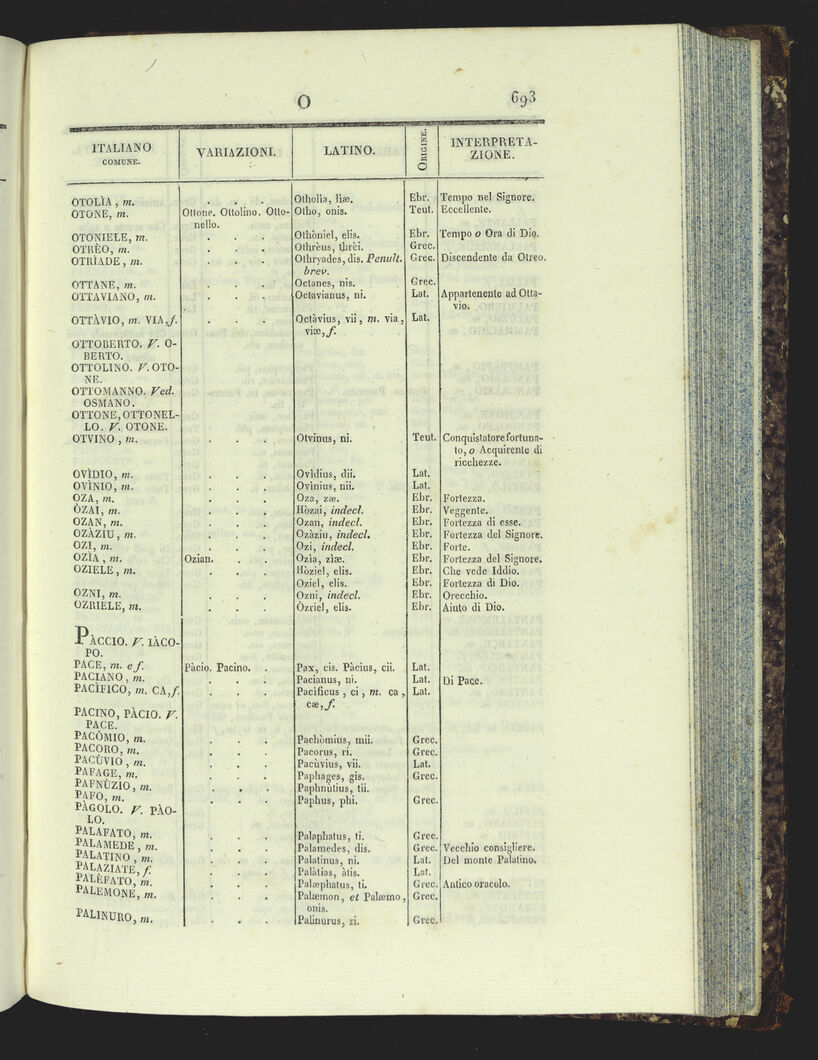 O 693
ITALIANO COMUNE. VARIAZIONI. LATINO. ORIGINE. INTERPRETA-
ZIONE.
OTOLÌA, m. . . . Otholìa, lìæ. Ebr. Tempo nel Signore.
OTONE, m. Ottone. Ottolino. Otto- Otho, onis. Teut. Eccellente.
nello.
OTONIELE, m. . . . Othòniel, elis. Ebr. Tempo o Ora di Dio.
OTRÈO, m. . . . Othrèus, thrèi. Grec.
OTRÌADE, m. . . . Othryades, dis. Penult. Grec. Discendente da Otreo.
brev.
OTTANE, m. . . . Octanes, nis. Grec.
OTTAVIANO, m. . . . Octavianus, ni. Lat. Appartenente ad Otta-
vio.
OTTÀVIO, m. VIA, f. . . . Octàvius, vii, m. via, Lat.
viæ, f.
OTTOBERTO. V. O-
BERTO.
OTTOLINO. V. OTO-
NE.
OTTOMANNO. Ved.
OSMANO.
OTTONE, OTTONEL-
LO. V. OTONE.
OTVINO, m. . . . Otvinus, ni. Teut. Conquistatore fortuna-
to, o Acquirente di
ricchezze.
OVÌDIO, m. . . . Ovìdius, dii. Lat.
OVÌNIO, m. . . . Ovìnius, nii. Lat.
OZA, m. . . . Oza, zæ. Ebr. Fortezza.
ÒZAI, m. . . . Hòzai, indecl. Ebr. Veggente.
OZAN, m. . . . Ozan, indecl. Ebr. Fortezza di esse.
OZÀZIU, m. . . . Ozàziu, indecl. Ebr. Fortezza del Signore.
OZI, m. . . . Ozi, indecl. Ebr. Forte.
OZÌA, m. Ozian. . . Ozìa, zìæ. Ebr. Fortezza del Signore.
OZIELE, m. . . . Hòziel, elis. Ebr. Che vede Iddio.
Oziel, elis. Ebr. Fortezza di Dio.
OZNI, m. . . . Ozni, indecl. Ebr. Orecchio.
OZRIELE, m. . . . Òzriel, elis. Ebr. Aiuto di Dio.
PÀCCIO. V. IÀCO-
PO.
PACE, m. e f. Pàcio. Pacino. . Pax, cis. Pàcius, cii. Lat.
PACIANO, m. . . . Pacianus, ni. Lat. Di Pace.
PACÌFICO, m. CA, f. . . . Pacìficus, ci, m. ca, Lat.
cæ, f.
PACINO, PÀCIO. V.
PACE.
PACÒMIO, m. . . . Pachòmius, mii. Grec.
PACORO, m. . . . Pacorus, ri. Grec.
PACÙVIO, m. . . . Pacùvius, vii. Lat.
PAFAGE, m. . . . Paphages, gis. Grec.
PAFNÙZIO, m. . . . Paphnùtius, tii.
PAFO, m. . . . Paphus, phi. Grec.
PÀGOLO. V. PÀO-
LO.
PALAFATO, m. . . . Palaphatus, ti. Grec.
PALAMEDE, m. . . . Palamedes, dis. Grec. Vecchio consigliere.
PALATINO, m. . . . Palatinus, ni. Lat. Del monte Palatino.
PALAZIATE, f. . . . Palàtias, àtis. Lat.
PALÈFATO, m. . . . Palæphatus, ti. Grec. Antico oracolo.
PALEMONE, m. . . . Palæmon, et Palæmo, Grec.
onis.
PALINURO, m. . . . Palinurus, ri. Grec.